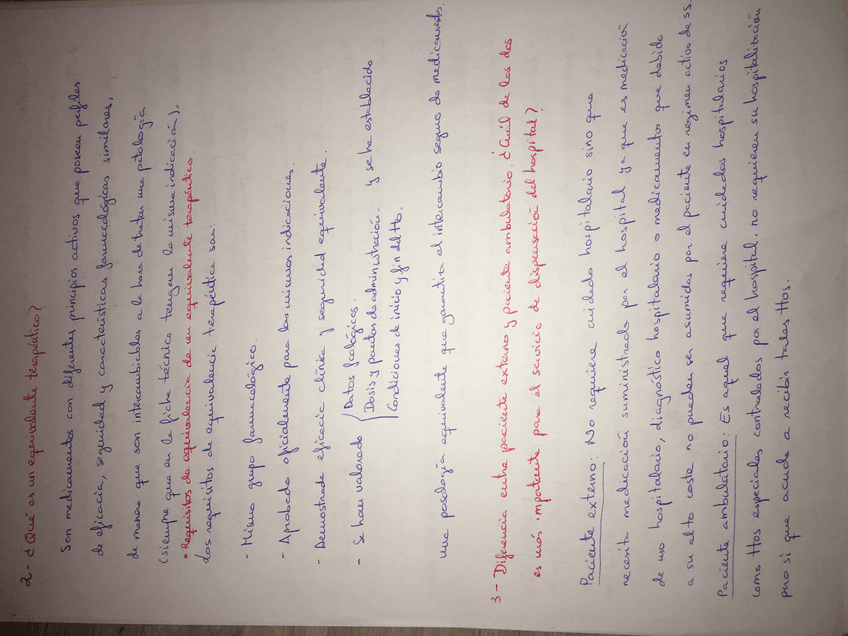 2- ¿Qué es un equivalente terapéutico?
Son medicamentos con diferentes principios activos que poseen perfiles
de eficacia, seguridad y características farmacológicas similares,
de manera que son intercambiables a la hora de tratar una patología
(siempre que en la ficha técnica tengan la misma indicación).
• Requisitos de equivalencia de un equivalente terapéutico.
Los requisitos de equivalencia terapéutica son:
- Mismo grupo farmacológico.
- Aprobado oficialmente para las mismas indicaciones.
- Demostrada eficacia clínica y seguridad equivalente.
- Se han valorado
Datos
Dosis y pautas de administración. y se ha establecido
Condiciones de inicio y fin del tto.
una posología equivalente que garantiza el intercambio seguro de medicamentos.
3- Diferencia entre paciente externo y paciente ambulatorio. ¿Cuál de las dos
es más importante para el servicio de dispensación del hospital?
Paciente externo: No requiere cuidado hospitalario sino que
necesita medicación suministrada por el hospital ya que es medicación
de uso hospitalario, diagnóstico hospitalario o medicamentos que debido
a su alto coste no pueden ser asumidas por el paciente en regimen activo de SS.
Paciente ambulatorio: Es aquel que requiere cuidados hospitalarios
como ttos especiales controlados por el hospital, no requieren su hospitalización
pero si que acude a recibir tales ttos.